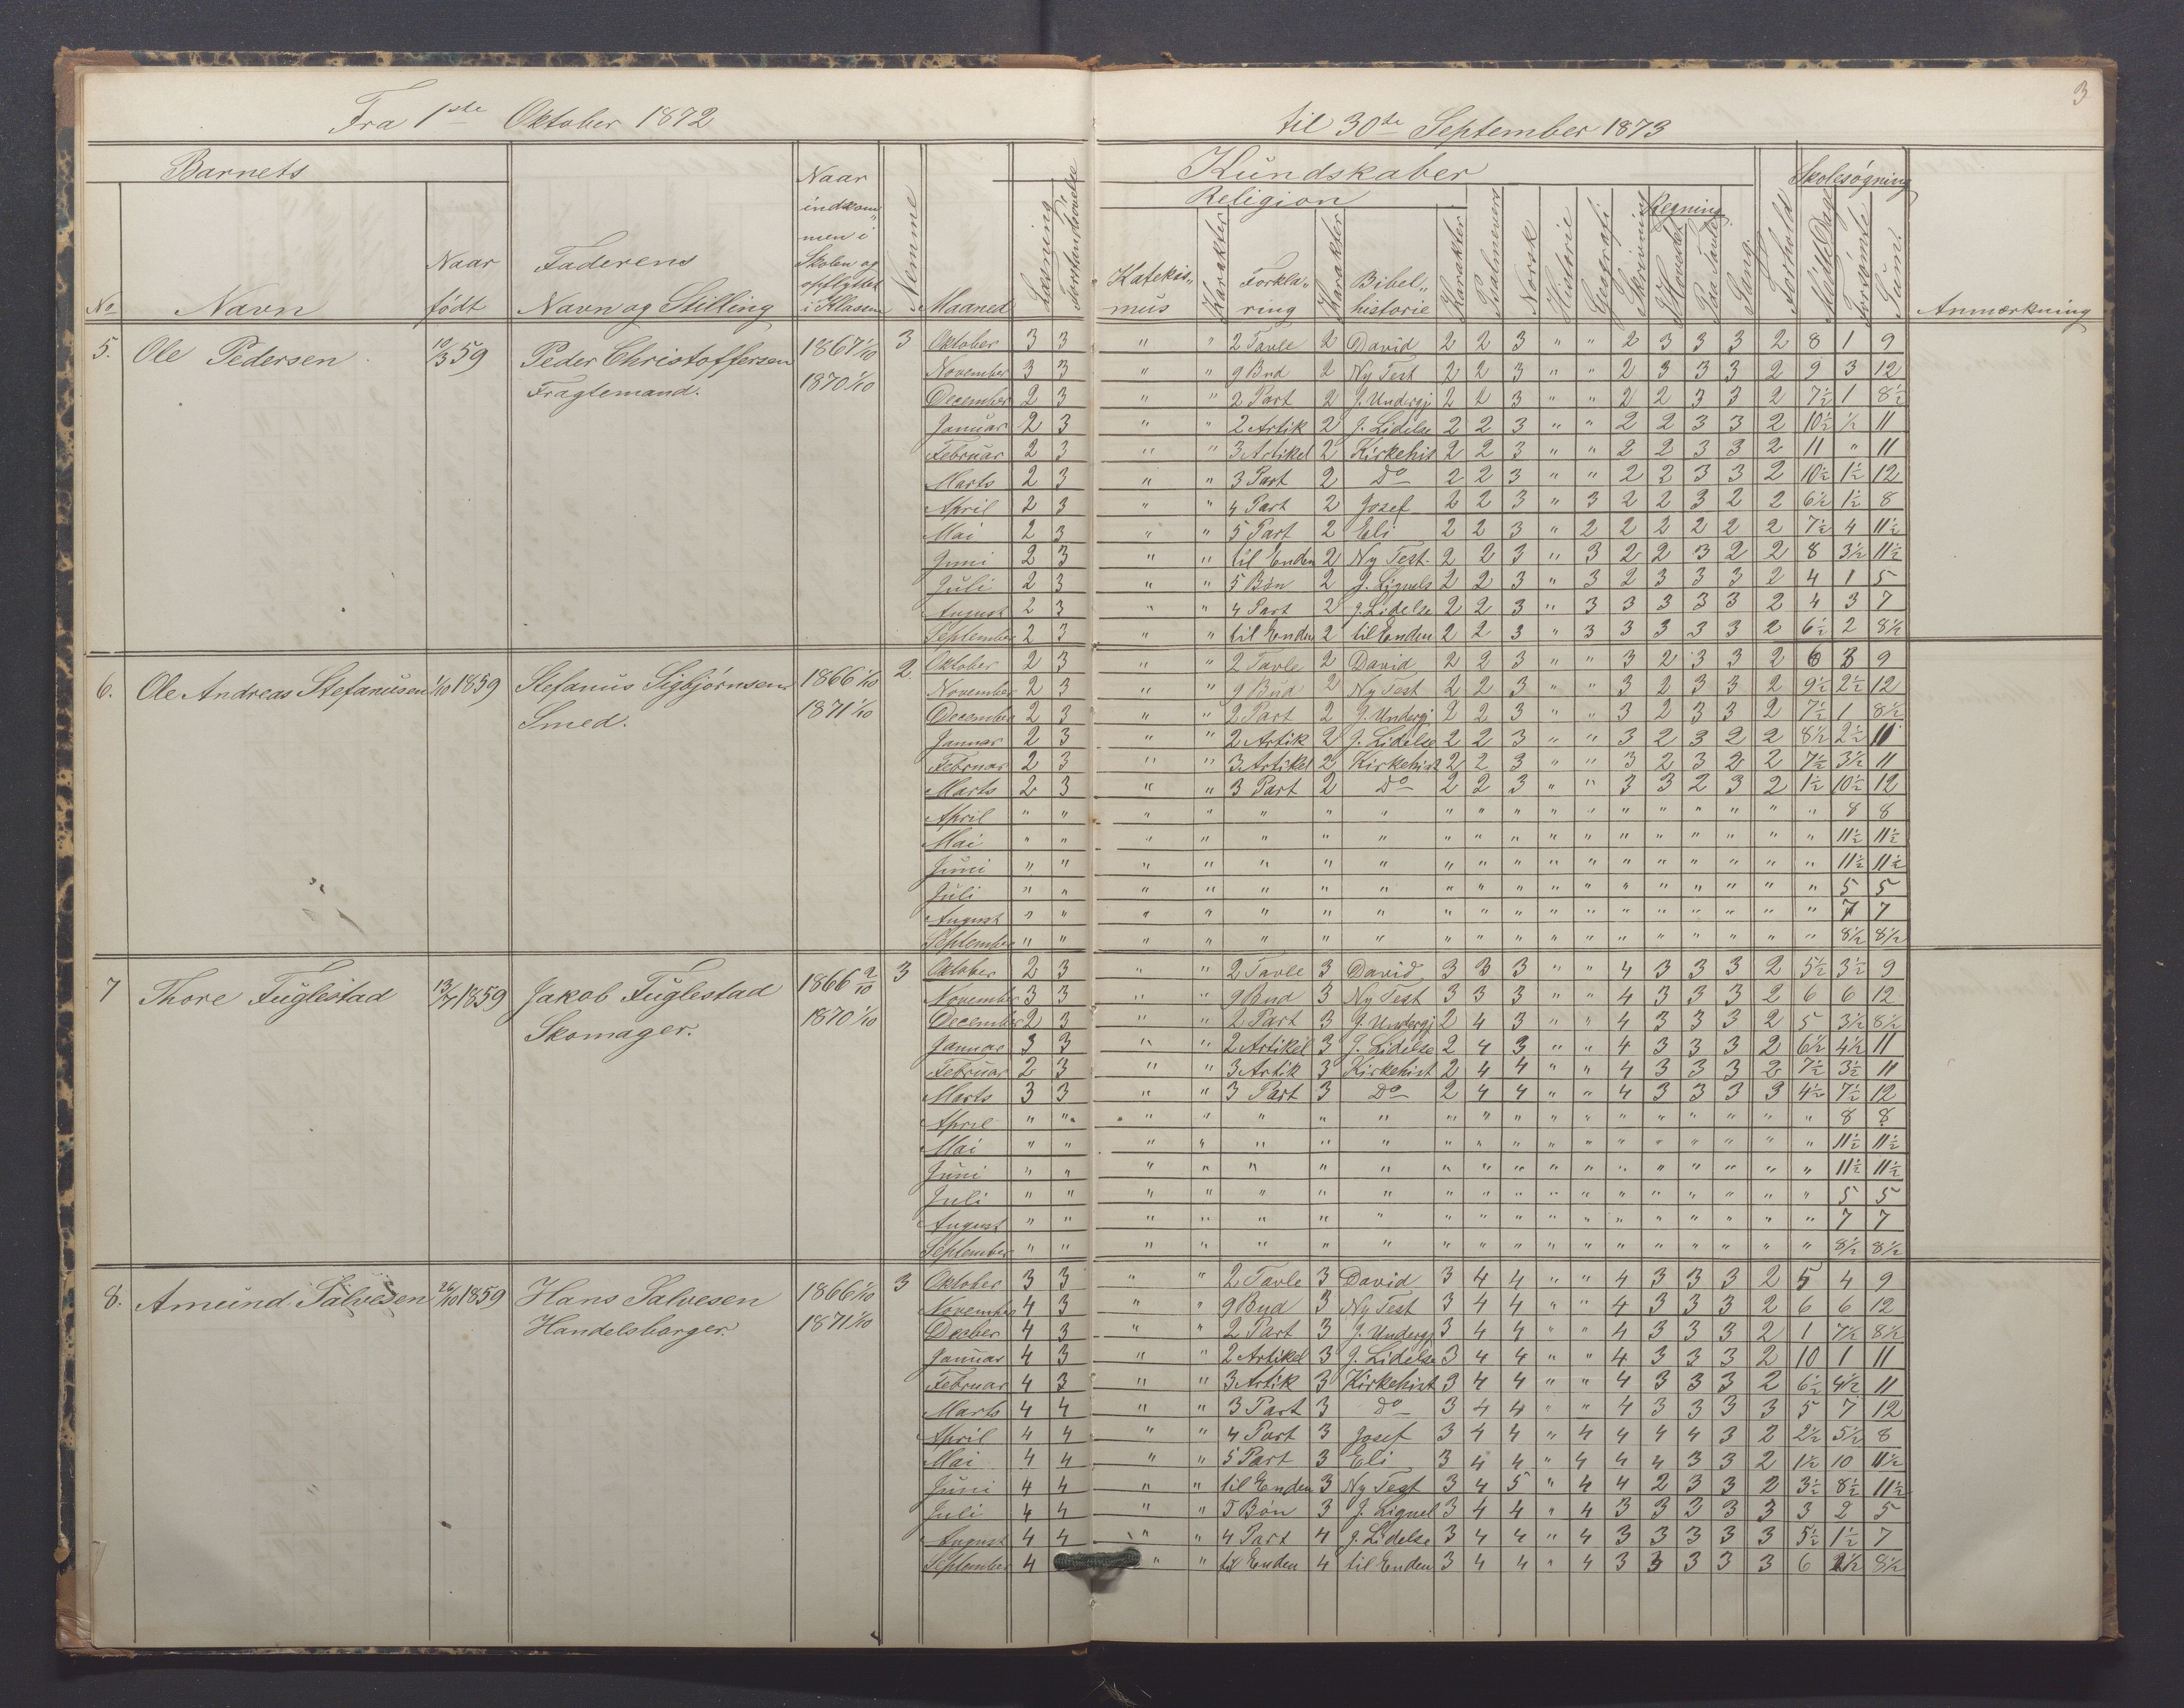 3
Fra 1ste Oktober 1872 til 30te September 1873
Barnets
Kundskaber
Skolesøgning
Religion
Regning
No Navn Naar født Faderens Navn og Stilling Naar indkommen i Skolen og opflyttet i Klassen Nemme Maaned Læsning Forstandsøvelse Katekis„mus Karakter Forkla„ring Karakter Bibel„historie Karakter Psalmevers Norsk Historie Geografi Skrivning I Hovedet Paa Tavlen Sang Forhold Mødte Dage Forsømte Sum. Anmærkning
5. Ole Pedersen 10/3 59 Peder Christoffersen 1867 1/10 3 Oktober 3 3 " " 2 Tavle 2 David 2 2 3 " " 2 3 3 3 2 8 1 9
Fragtemand. 1870 1/10 November 3 3 " " 9 Bud 2 Ny Test 2 2 3 " " 2 3 3 3 2 9 3 12
December 2 3 " " 2 Part 2 J. Undergj 2 2 3 " " 2 2 3 3 2 7½ 1 8½
Januar 2 3 " " 2 Artik 2 J. Lidelse 2 2 3 " " 2 2 3 3 2 10½ ½ 11
Februar 2 3 " " 3 Artikel 2 Kirkehist 2 2 3 " " 2 2 3 3 2 11 " 11
Marts 2 3 " " 3 Part 2 Do 2 2 3 " " 2 2 3 3 2 10½ 1½ 12
April 2 3 " " 4 Part 2 Josef 2 2 3 " 3 2 2 3 2 2 6½ 1½ 8
Mai 2 3 " " 5 Part 2 Eli 2 2 3 " 2 2 2 2 2 2 7½ 4 11½
Juni 2 3 " " til Enden 2 Ny Test. 2 2 3 " 3 2 2 3 2 2 8 3½ 11½
Juli 2 3 " " 5 Bøn 2 J. Lignels 2 2 3 " 3 2 3 3 3 2 4 1 5
August 2 3 " " 4 Part 2 J. Lidelse 2 2 3 " 3 3 3 3 3 2 4 3 7
September 2 3 " " til Enden 2 til Enden 2 2 3 " 3 3 3 3 3 2 6½ 2 8½
6. Ole Andreas Stefanusen 1/10 1859 Stefanus Sigbjørnsen 1866 1/10 2. Oktober 2 3 " " 2 Tavle 2 David 2 2 3 " " 3 2 3 3 2 6 3 9
Smed. 1871 1/10 November 2 3 " " 9 Bud 2 Ny Test 2 2 3 " " 3 2 3 3 2 9½ 2½ 12
December 2 3 " " 2 Part 2 J. Undergj. 2 2 3 " " 3 2 3 3 2 7½ 1 8½
Januar 2 3 " " 2 Artik 2 J. Lidelse 2 2 3 " " 3 2 3 2 2 8½ 2½ 11
Februar 2 3 " " 3 Artikel 2 Kirkehist 2 2 3 " " 3 2 3 2 2 7½ 3½ 11
Marts 2 3 " " 3 Part 2 Do 2 2 3 " " 3 3 2 3 2 1½ 10½ 12
April " " " " " " " " " " " " " " " " " " 8 8
Mai " " " " " " " " " " " " " " " " " " 11½ 11½
Juni " " " " " " " " " " " " " " " " " " 11½ 11½
Juli " " " " " " " " " " " " " " " " " " 5 5
August " " " " " " " " " " " " " " " " " " 7 7
September " " " " " " " " " " " " " " " " " " 8½ 8½
7 Thore Fuglestad 13/7 1859 Jakob Fuglestad 1866 2/10 3 Oktober 2 3 " " 2 Tavle 3 David 3 3 3 " " 4 3 3 3 2 5½ 3½ 9
Skomager. 1870 1/10 November 3 3 " " 9 Bud 3 Ny Test 3 3 3 " " 4 3 3 3 2 6 6 12
December 2 3 " " 2 Part 3 J. Undergj 2 4 3 " " 4 3 3 3 2 5 3½ 8½
Januar 3 3 " " 2 Artikel 3 J. Lidelse 2 4 3 " " 4 3 3 3 2 6½ 4½ 11
Februar 2 3 " " 3 Artik 3 Kirkehist 2 4 4 " " 4 3 3 3 2 7½ 3½ 11
Marts 3 3 " " 3 Part 3 Do 2 4 4 " " 4 3 3 3 3 4½ 7½ 12
April " " " " " " " " " " " " " " " " " " 8 8
Mai " " " " " " " " " " " " " " " " " " 11½ 11½
Juni " " " " " " " " " " " " " " " " " " 11½ 11½
Juli " " " " " " " " " " " " " " " " " " 5 5
August " " " " " " " " " " " " " " " " " " 7 7
September " " " " " " " " " " " " " " " " " " 8½ 8½
8. Amund Salvesen 26/10 1859 Hans Salvesen 1866 1/10 3 Oktober 3 3 " " 2 Tavle 3 David 3 4 4 " " 4 3 3 3 2 5 4 9
Handelsborger. 1871 1/10 November 4 3 " " 9 Bud 3 Ny Test 3 4 4 " " 4 3 3 3 2 6 6 12
Decber 4 3 " " 2 Part 3 J. Undergj 3 4 4 " " 4 3 3 3 2 1 7½ 8½
Januar 4 3 " " 2 Artikel 3 J. Lidelse 3 4 4 " " 4 3 3 3 2 10 1 11
Februar 4 3 " " 3 Artik 3 Kirkehist 3 4 4 " " 4 3 3 3 2 6½ 4½ 11
Marts 4 4 " " 3 Part 3 do 3 4 4 " " 4 3 3 3 3 5 7 12
April 4 4 " " 4 Part 3 Josef 3 4 4 " 4 4 4 4 3 2 2½ 5½ 8
Mai 4 4 " " 5 Part 3 Eli 3 4 4 " 4 4 4 3 3 2 1½ 10 11½
Juni 4 4 " " til Enden 3 Ny Test 3 4 5 " 4 4 2 3 3 2 3½ 8½ 11½
Juli 4 4 " " 5 Bøn 3 J. Lignel 3 4 4 " 4 3 3 3 3 3 3 2 5
August 4 4 " " 4 Part 4 J. Lidelse 3 4 4 " 4 3 3 3 3 3 5½ 1½ 7
September 4 " " til Enden 4 til Enden 3 4 4 " 4 3 3 3 3 3 6 2½ 8½